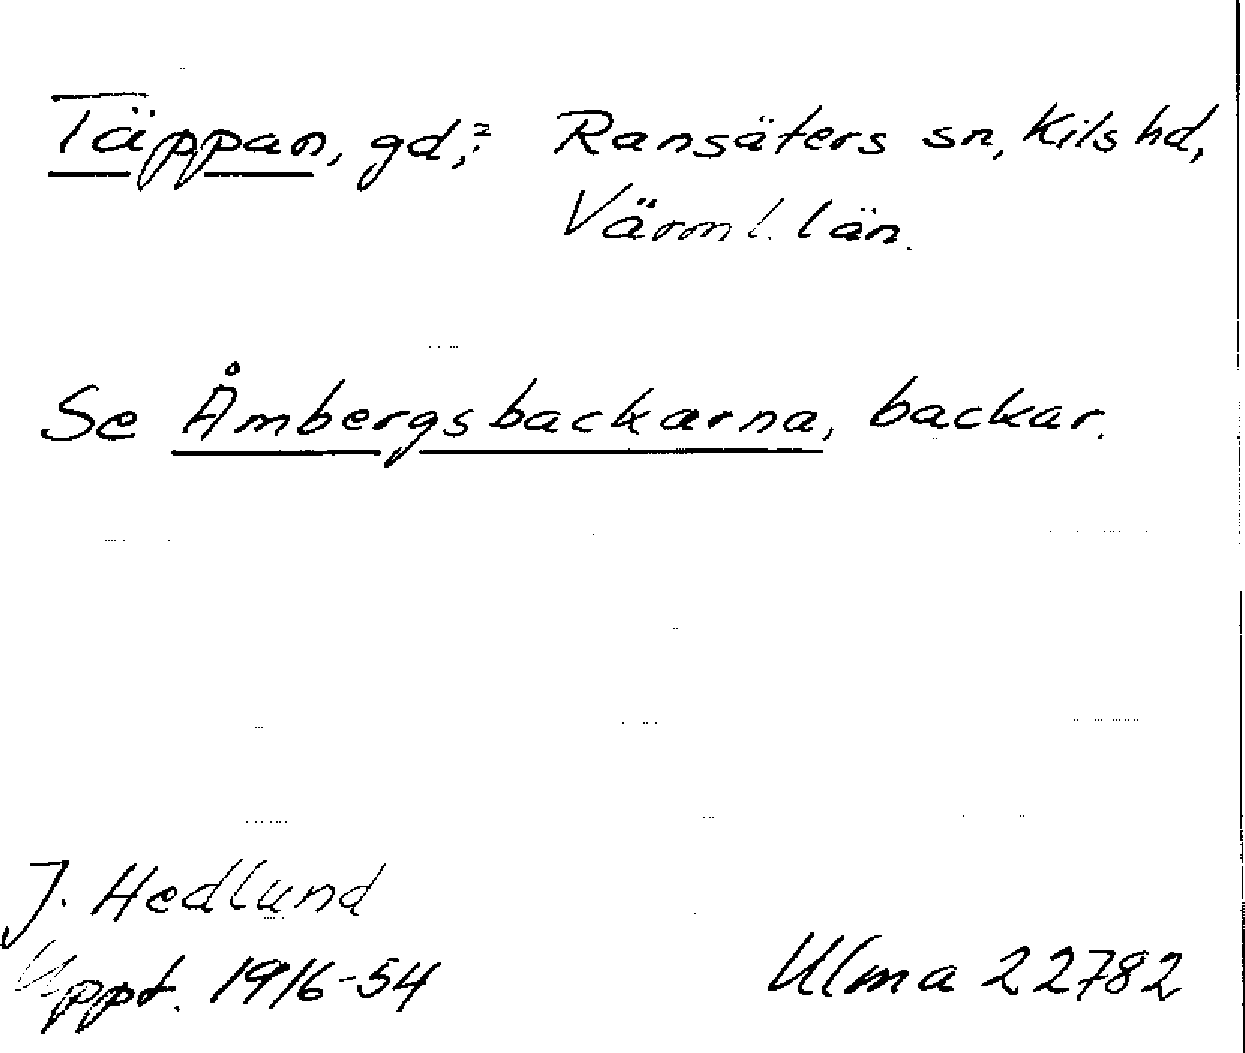 Täppan, gd,? Ransäters sn, Kils hd,
Värml. län.
Se Åmbergsbackarna, backar.
J. Hedlund
Uppt. 1916-54
Ulma 22782